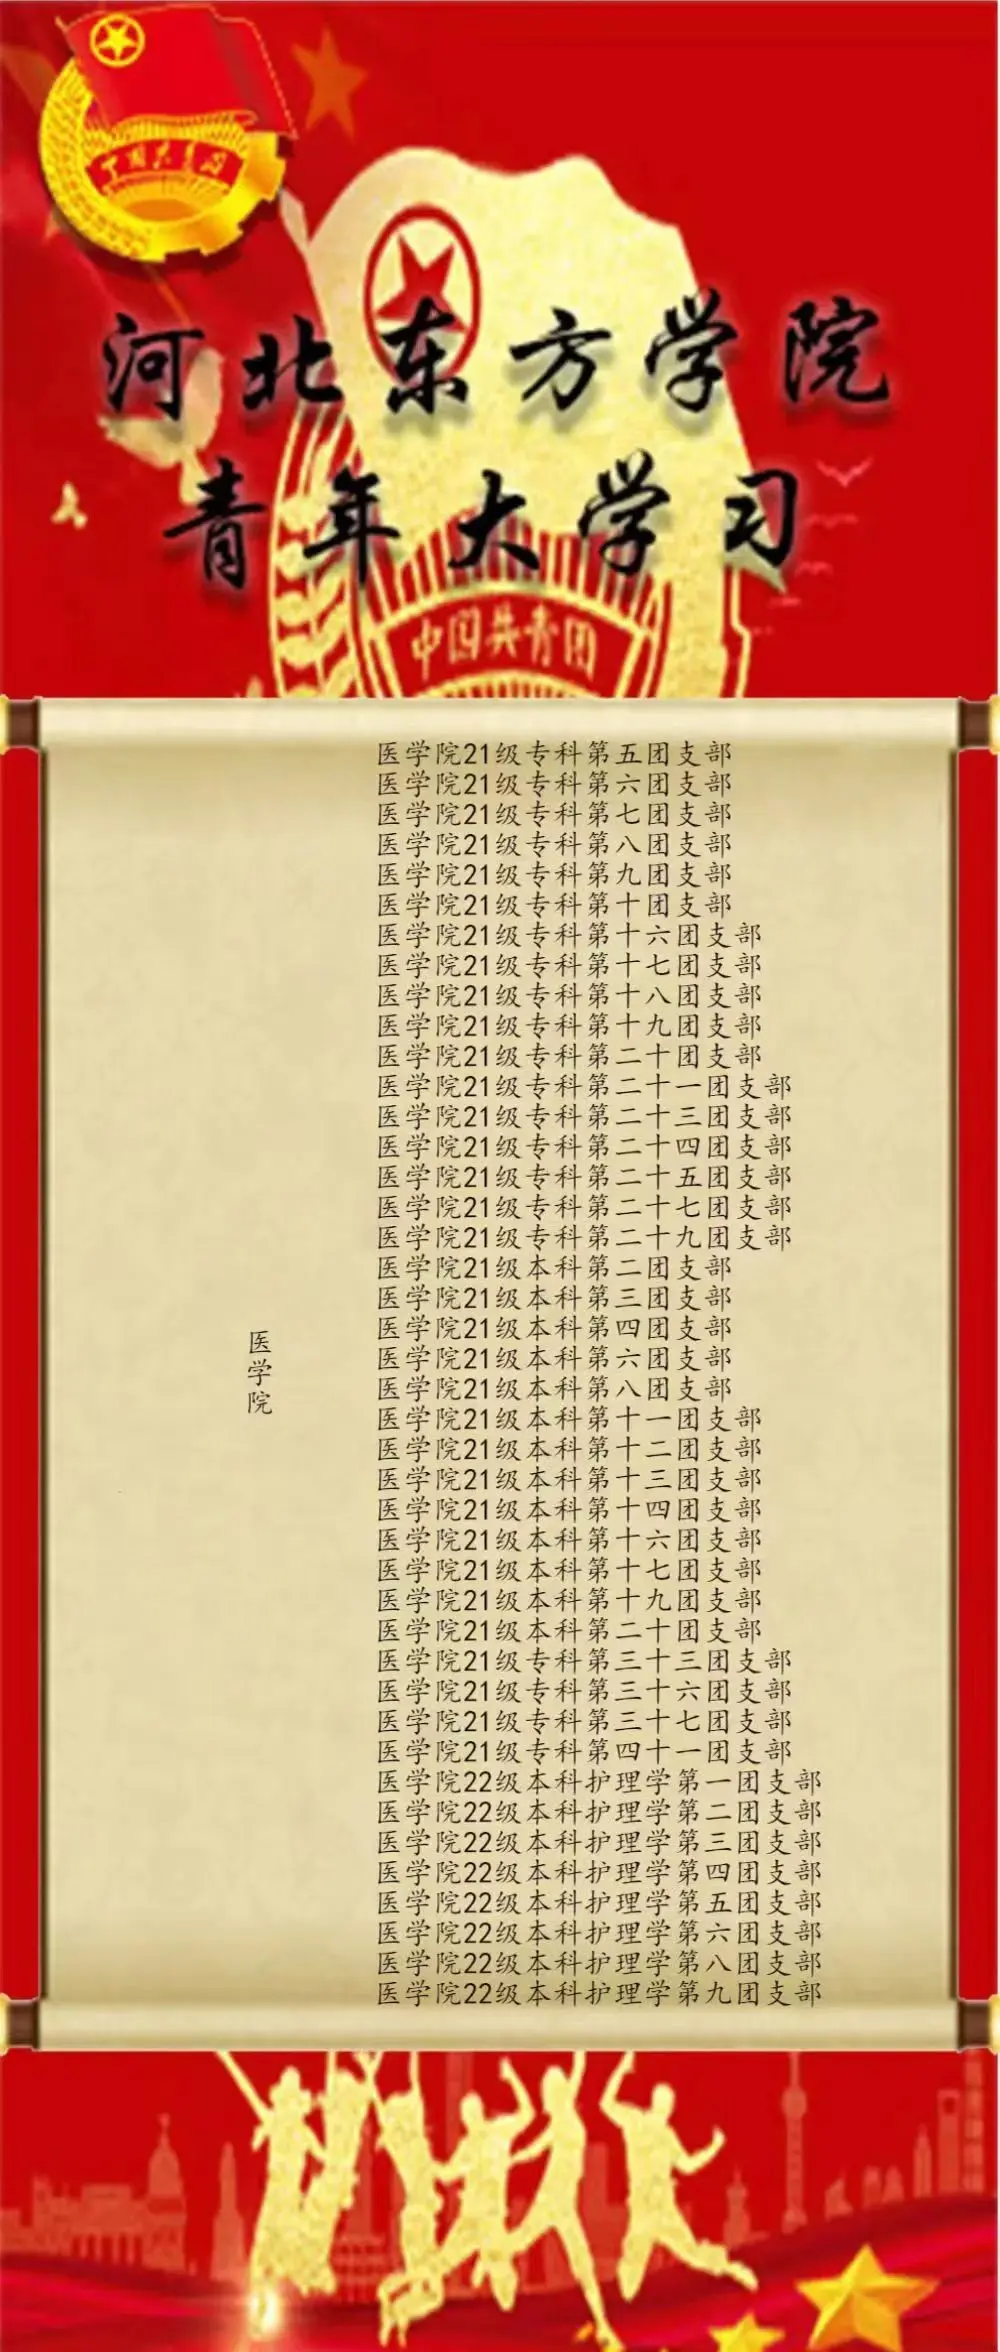 中国共青团
河北东方学院
青年大学习
中国共青团
医学院21级专科第五团支部
医学院21级专科第六团支部
医学院21级专科第七团支部
医学院21级专科第八团支部
医学院21级专科第九团支部
医学院21级专科第十团支部
医学院21级专科第十六团支部
医学院21级专科第十七团支部
医学院21级专科第十八团支部
医学院21级专科第十九团支部
医学院21级专科第二十团支部
医学院21级专科第二十一团支部
医学院21级专科第二十三团支部
医学院21级专科第二十四团支部
医学院21级专科第二十五团支部
医学院21级专科第二十七团支部
医学院21级专科第二十九团支部
医学院21级本科第二团支部
医学院21级本科第三团支部
医学院21级本科第四团支部
医学院21级本科第六团支部
医学院21级本科第八团支部
医学院21级本科第十一团支部
医学院21级本科第十二团支部
医学院21级本科第十三团支部
医学院21级本科第十四团支部
医学院21级本科第十六团支部
医学院21级本科第十七团支部
医学院21级本科第十九团支部
医学院21级本科第二十团支部
医学院21级专科第三十三团支部
医学院21级专科第三十六团支部
医学院21级专科第三十七团支部
医学院21级专科第四十一团支部
医学院22级本科护理学第一团支部
医学院22级本科护理学第二团支部
医学院22级本科护理学第三团支部
医学院22级本科护理学第四团支部
医学院22级本科护理学第五团支部
医学院22级本科护理学第六团支部
医学院22级本科护理学第八团支部
医学院22级本科护理学第九团支部
医学院